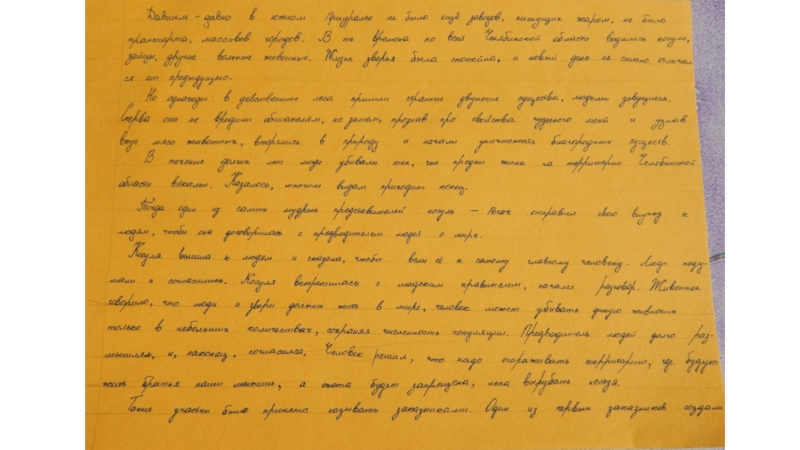 Давным-давно в южном Приуралье не было ещё заводов, пышущих жаром, не было
транспорта, массивов городов. В те времена по всей Челябинской области водились косули,
зайцы, другие вольные животные. Жизнь зверья была спокойна, и новый день не сильно отличал-
ся от предыдущего.
Но однажды в девственные леса пришли странные двуногие существа, людьми зовущиеся.
Сперва они не вредили обитателям, но затем, прознав про свойства чудесного меха и узнав
вкус мяса животных, вторглись в природу и начали уничтожать благородных существ.
В течение долгих лет люди убивали тех, чьи предки жили на территории Челябинской
области веками. Казалось, многим видам приходит конец.
Тогда один из самых мудрых представителей косуль — отправил свою внучку к
людям, чтобы она договорилась с предводителем людей о мире.
Косуля вышла к людям и сказала, чтобы вели её к самому главному человеку. Люди поду-
мали и согласились. Косуля встретилась с людским правителем, начали разговор. Животное
говорило, что люди и звери должны жить в мире, человек может убивать дикую живность
только в небольших количествах, сохраняя численность популяции. Предводитель людей долго раз-
мышлял, и, наконец, согласился. Человек решил, что надо огораживать территорию, где будут
жить братья наши меньшие, а охота будет запрещена, леса вырубать нельзя.
Такие участки было принято называть заказниками. Один из первых заказников создали